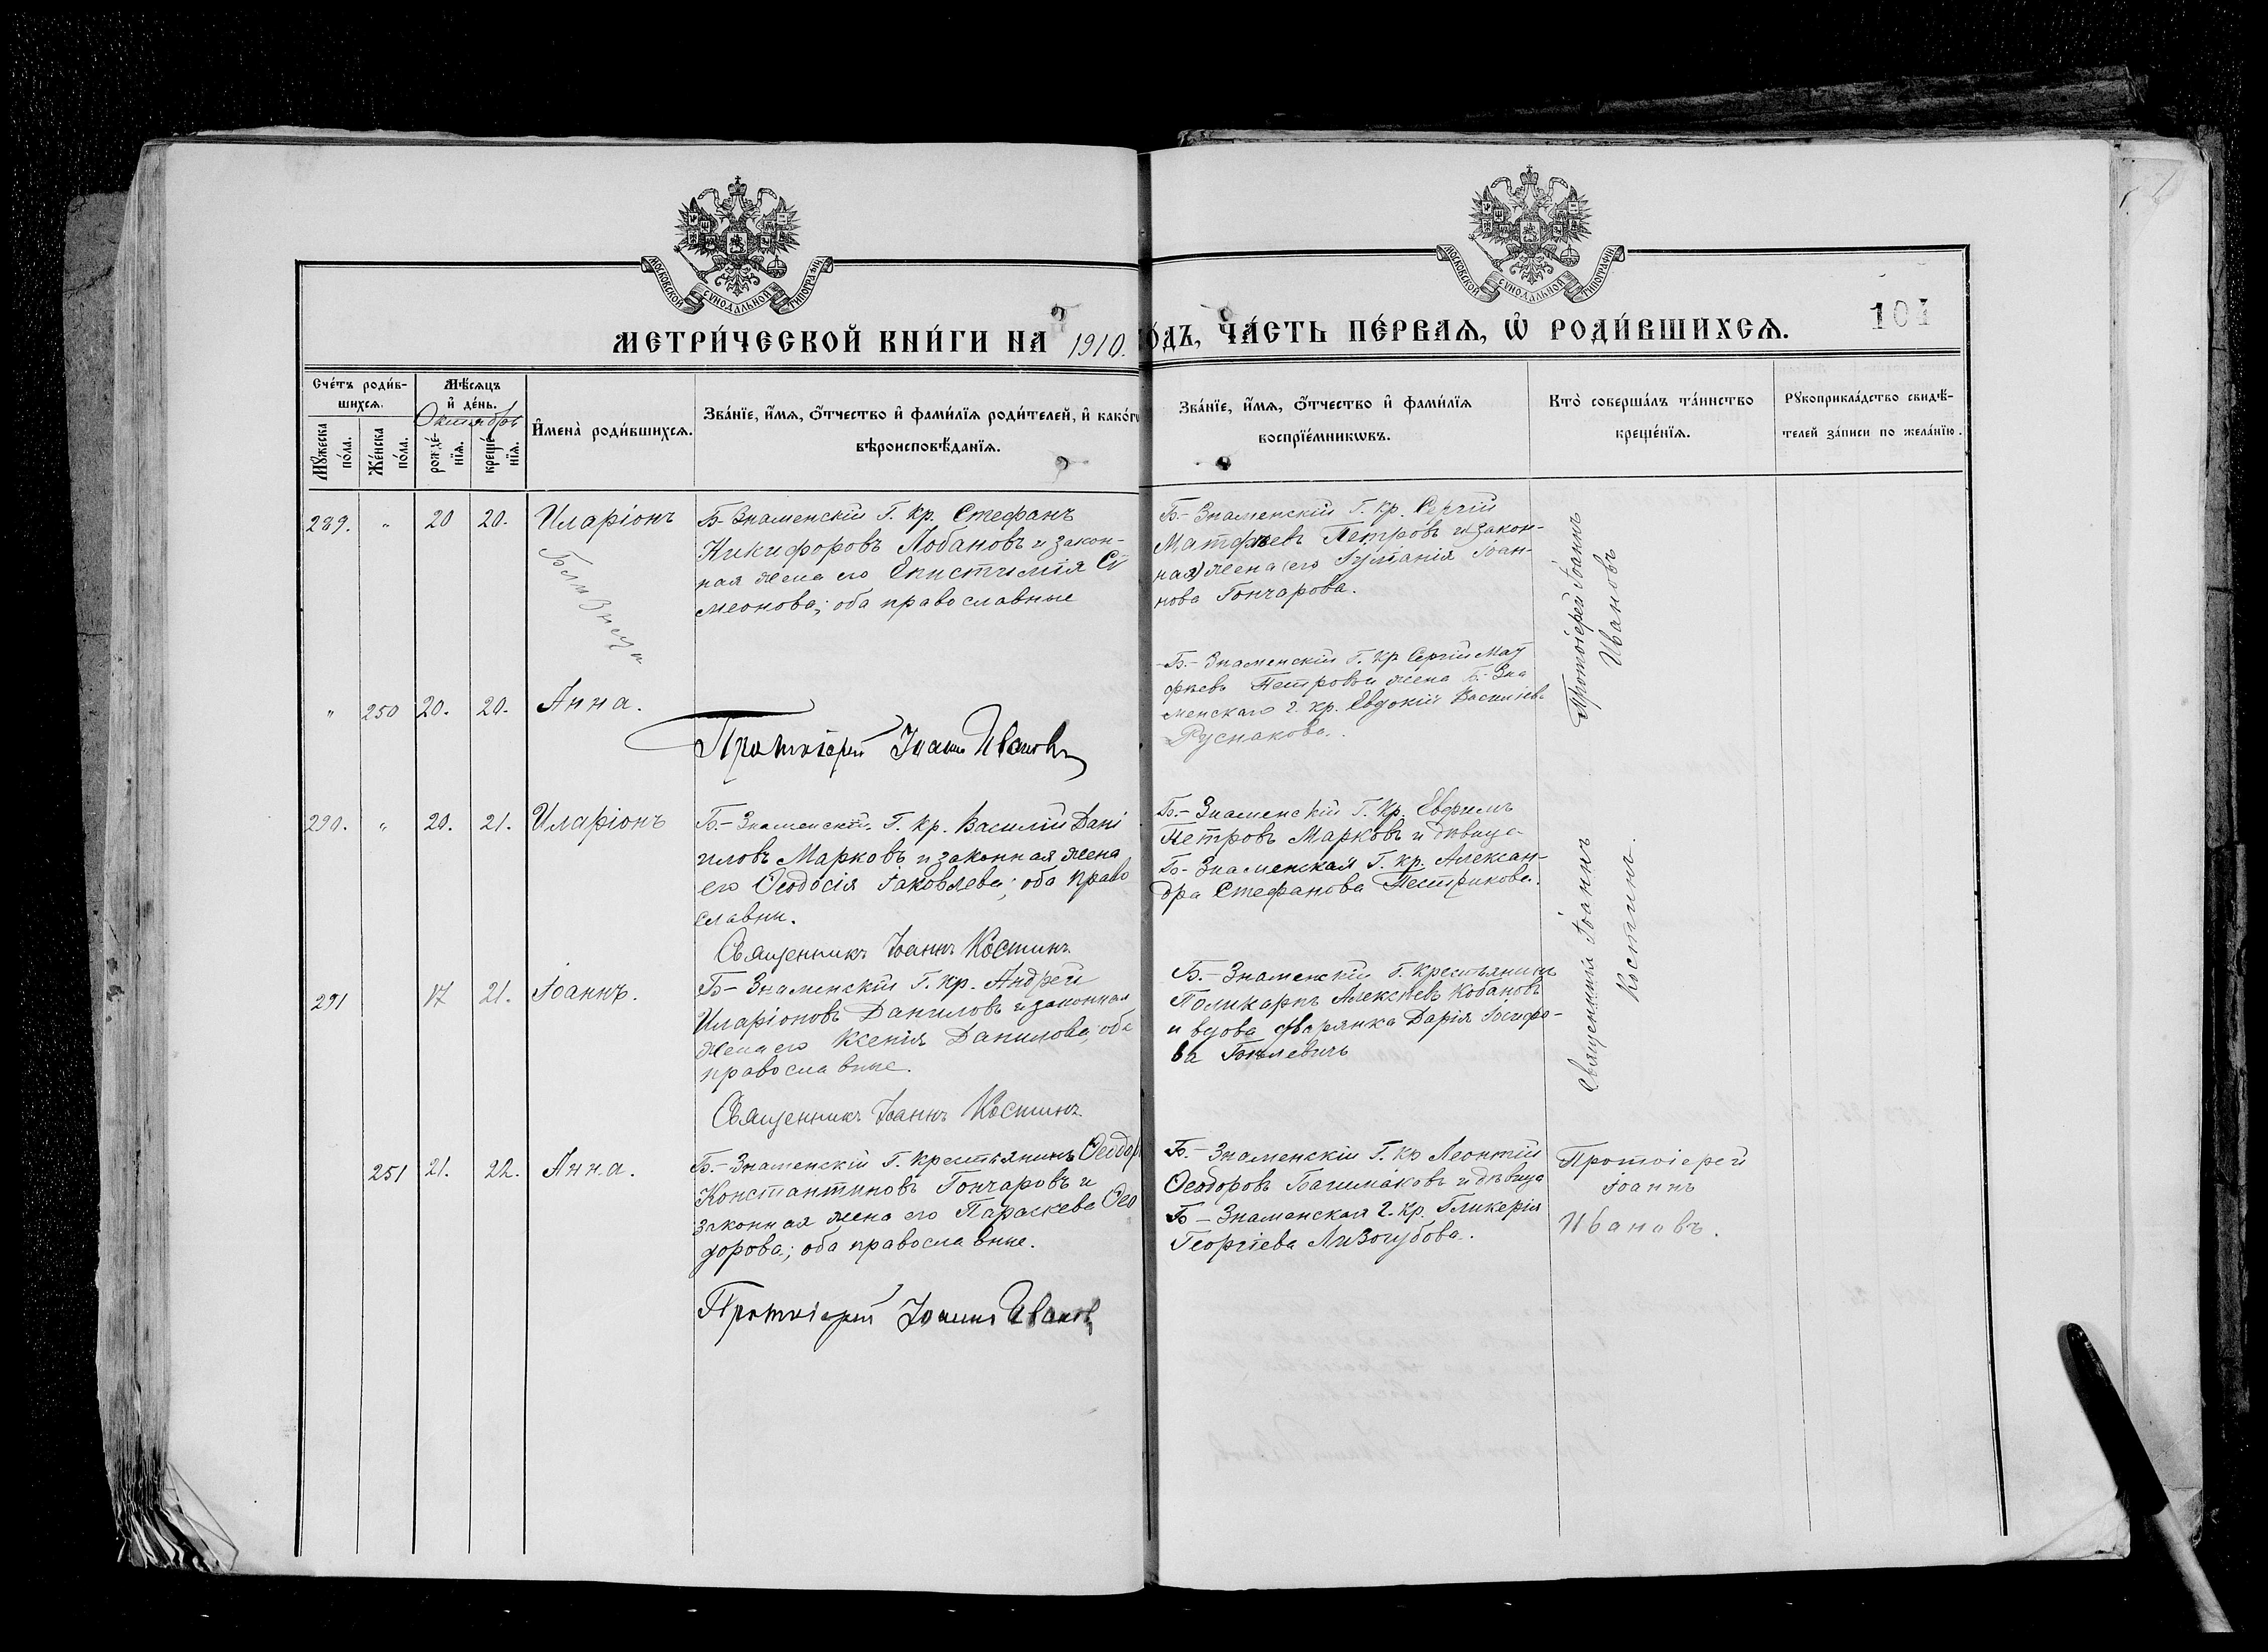 МОСКОВСКОЙ СѴНОДАЛЬНОЙ ТИПОГРАФІИ
МОСКОВСКОЙ СѴНОДАЛЬНОЙ ТИПОГРАФІИ
МЕТРИ́ЧЕСКОЙ КНИ́ГИ НА 1910. ГО́ДЪ, ЧА́СТЬ ПЕ́РВАѦ, Ѡ҆ РОДИ́ВШИХСѦ.
101
Сче́тъ роди́в-
шихсѧ.
Мꙋ́жеска по́ла.
Же́нска по́ла.
Мѣ́сѧцъ
и҆ де́нь.
Октябрь
рожде́-нїѧ.
креще́-нїѧ.
И҆мена̀ роди́вшихсѧ.
Зва́нїе, и҆́мѧ, ѻ҆́тчество и҆ фами́лїѧ роди́телей, и҆ како́гѡ
вѣроисповѣ́данїѧ.
Зва́нїе, и҆́мѧ, ѻ҆́тчество и҆ фами́лїѧ
воспрїе́мникѡвъ.
Кто̀ соверша́лъ та́инство
креще́нїѧ.
Рꙋкоприкла́дство свидѣ́-
телей за́писи по жела́нїю.
289. " 20 20. Иларіонъ
Близнецы
Б-Знаменскій Г. Кр. Стефанъ
Никифоровъ Лобановъ и закон-
ная жена его Епистимія Си
меонова; оба православные
Б-Знаменскій Г. Кр. Сергій
Матфѣевъ Петровъ и закон-
ная жена его Іуліанія Іоан-
нова Гончарова.
Протоіерей Іоаннъ
Ивановъ
" 250 20. 20. Анна.
Протоіерей Іоаннъ Ивановъ
Б.-Знаменскій Г. Кр Сергій Мат
фѣевъ Петровъ и жена Б-Зна
менскаго г. кр. Евдокій Василіева
Руснакова.
290. " 20. 21. Иларіонъ
Б-Знаменскій Г. Кр. Василій Дані
иловъ Марковъ и законная жена
его Ѳеодосія Іаковлева; оба право
славны.
Священникъ Іоаннъ Костинъ
Б-Знаменскій Г. Кр. Евфимъ
Петровъ Марковъ и дѣвица
Б-Знаменская Г. кр. Алексан-
дра Стефанова Пестрикова.
Священникъ Іоаннъ
Костинъ.
291 17 21. Іоаннъ.
Б-Знаменскій Г. Кр. Андрей
Иларіоновъ Даниловъ и законная
жена его Ксенія Данилова; оба
православные.
Священникъ Іоаннъ Костинъ
Б.-Знаменскій Г. Крестьянинъ
Поликарпъ Алексѣевъ Кобановъ
и вдова дворянка Дарія Іосифо-
ва
251 21. 22. Анна.
Б.-Знаменскій Г. Крестьянинъ Ѳеодоръ
Константиновъ Гончаровъ и
законная жена его Параскева Ѳео
дорова; оба православные.
Протоіерей Іоаннъ Ивановъ
Б.-Знаменскій Г. Кр Леонтій
Ѳеодоровъ Башмаковъ и дѣвица
Б-Знаменская г. Кр. Гликерія
Георгіева Лизогубова.
Протоіерей
Іоаннъ
Ивановъ.